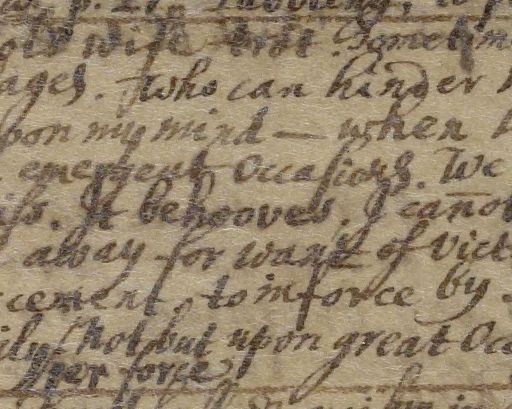 p. 27.
old wife trot Sometim
ages. Who can hinder
upon my mind — when
emergent Occasions. We
It behooves. I cannot
away for want of vict
cement, to inforce by
ily not but upon great Occ
per force